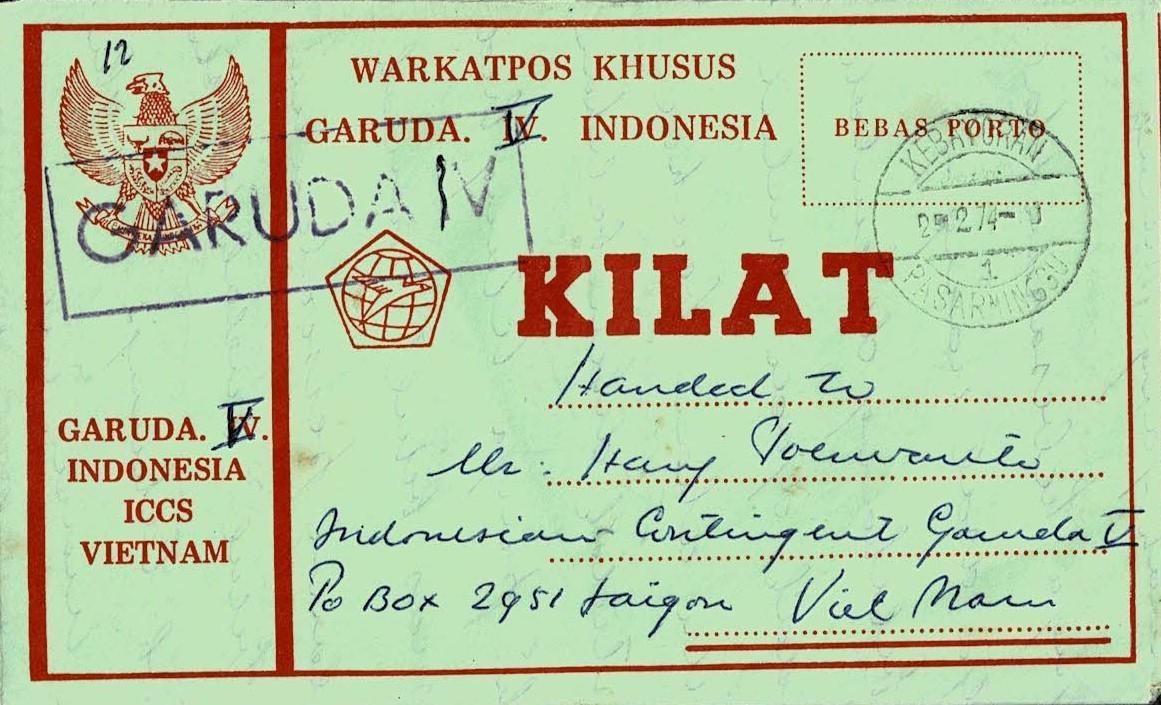 12
WARKATPOS KHUSUS
GARUDA. V. INDONESIA
BEBAS PORTO
KEBAYORAN
2-2.74-
1
PASARMINGGU
GARUDA IV
KILAT
Handed to
Mr. Hany Poerwanto
Indonesian Contingent Garuda V
Po Box 2951 Saigon Viet Nam
GARUDA. V.
INDONESIA
ICCS
VIETNAM